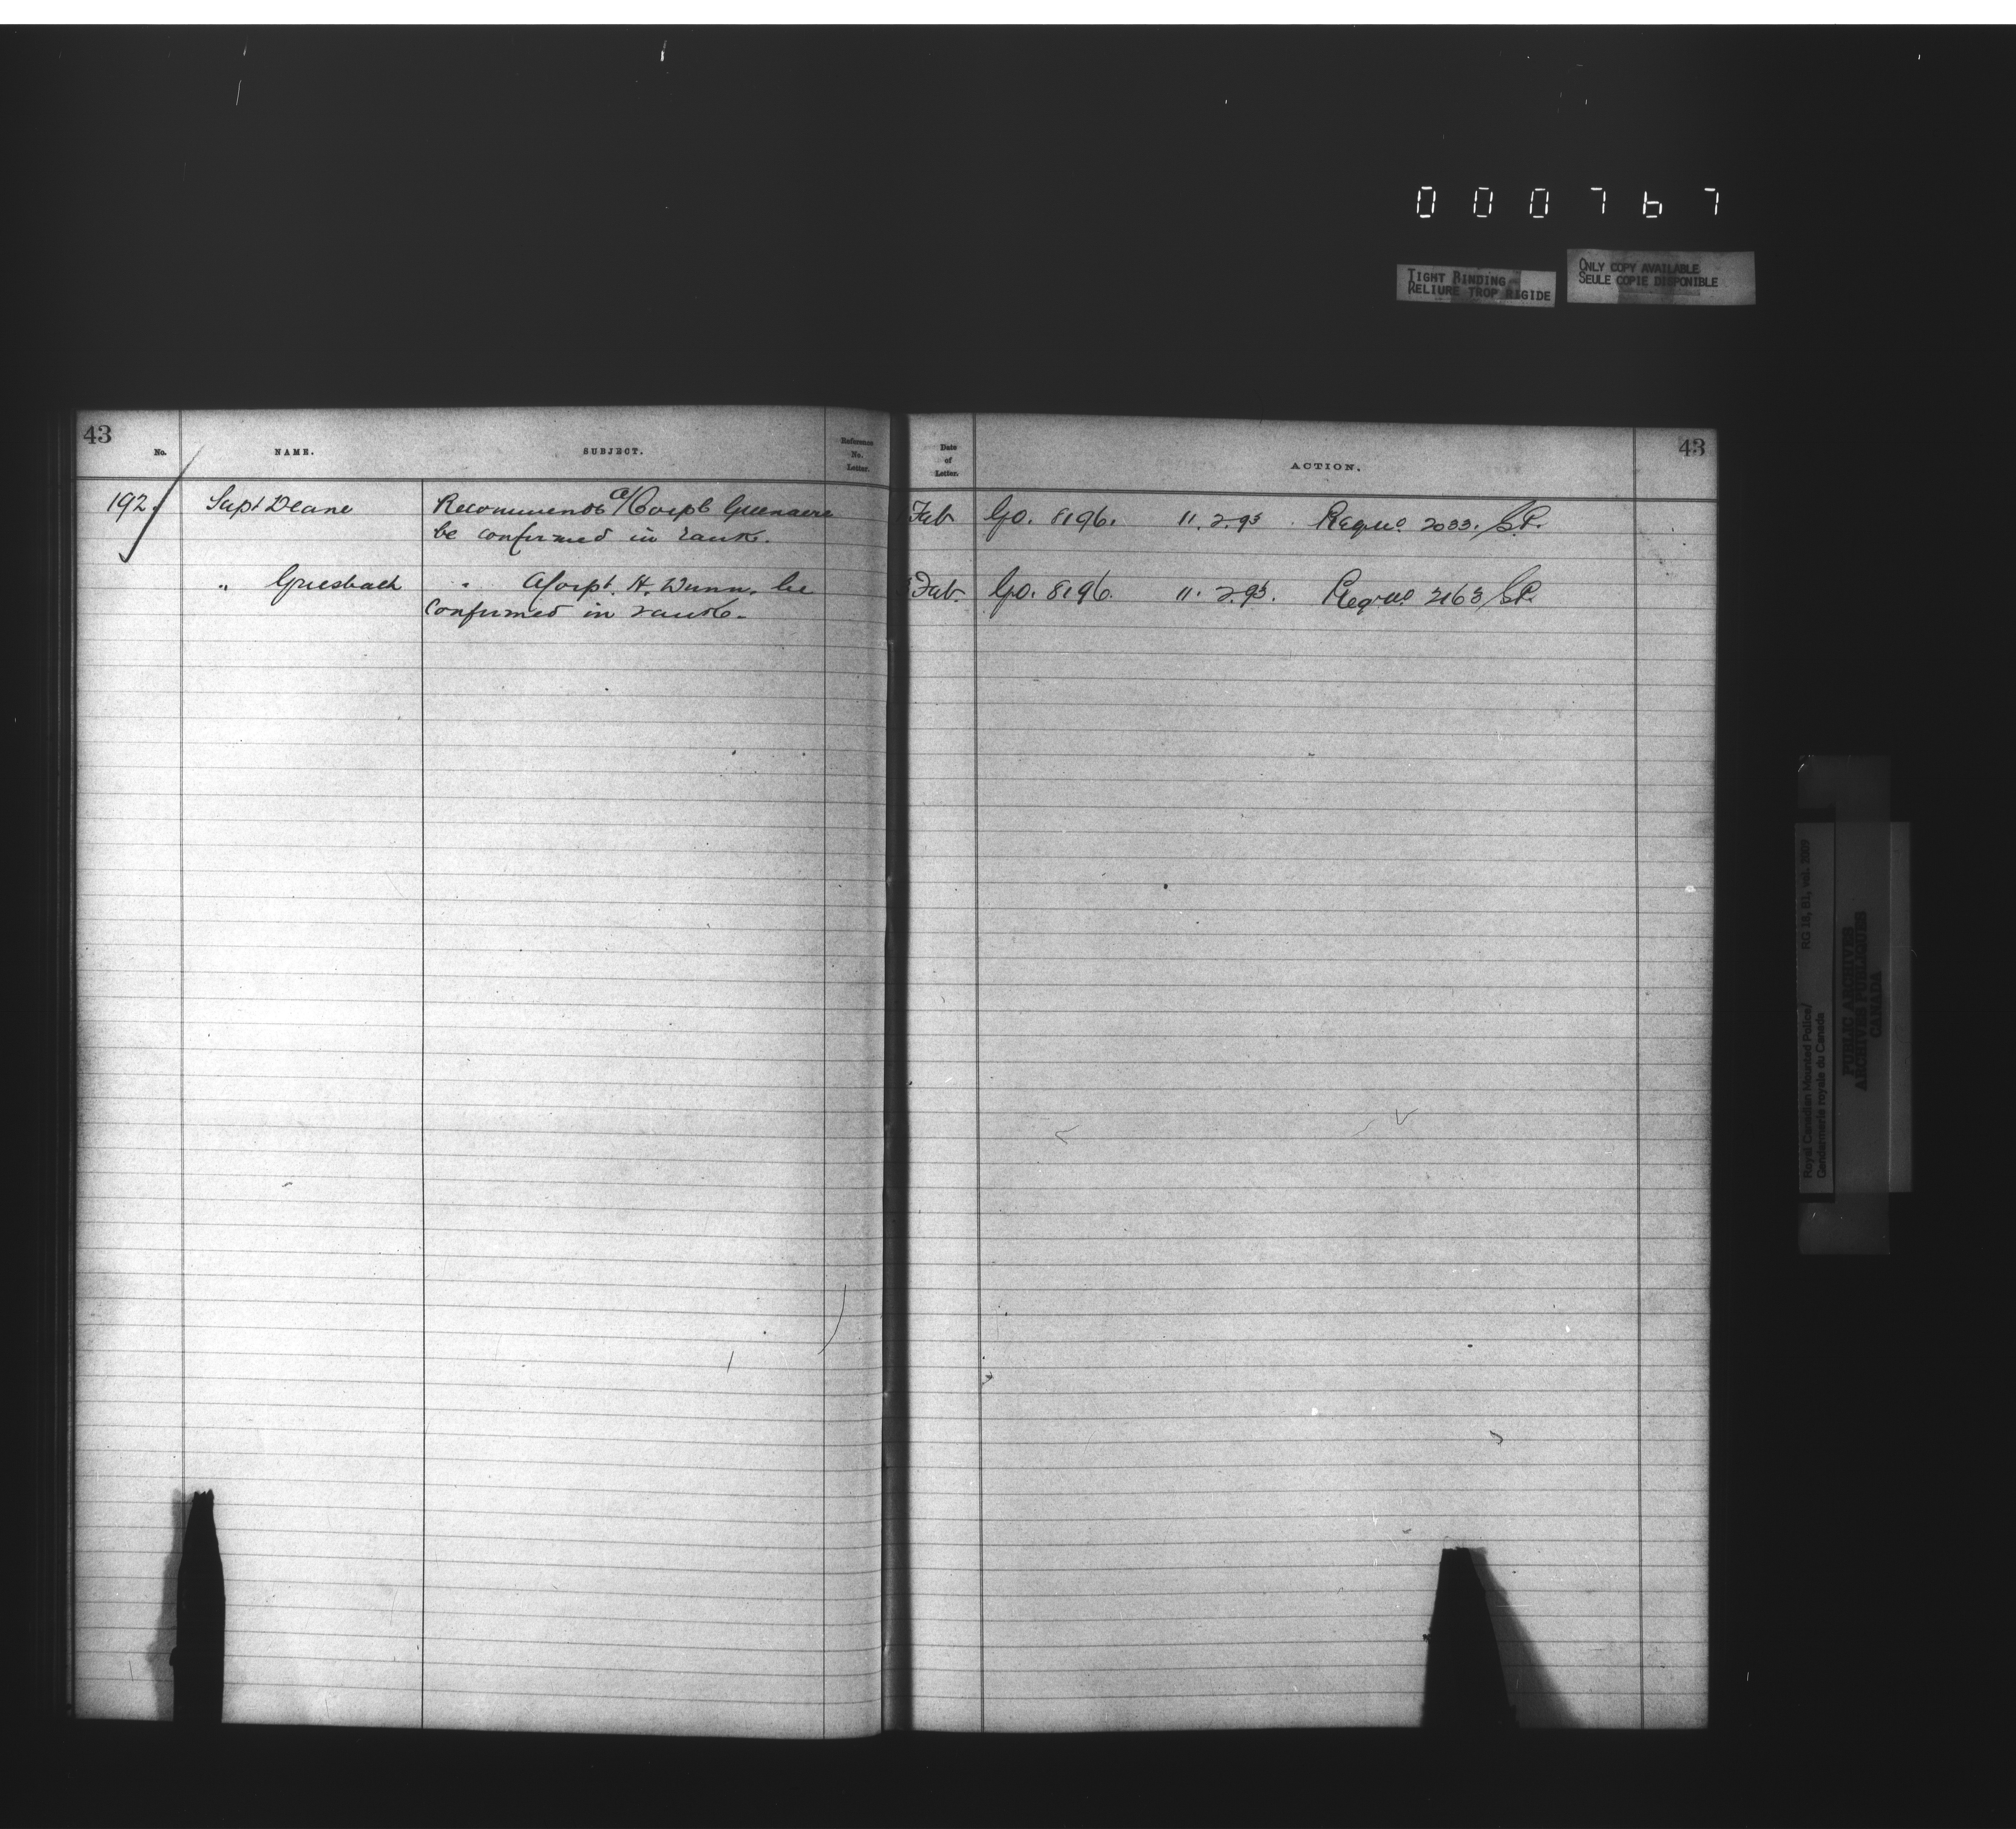 000767
TIGHT BINDING
RELIURE TROP RIGIDE
ONLY COPY AVAILABLE
SEULE COPIE DISPONIBLE
43
No.
NAME.
SUBJECT.
Reference
No.
Letter.
Date
of
Letter.
ACTION.
43
192. Supt Deane Recommends a/Corpl Greenacre Feb GO. 8196. 11.2.93. Regt No 2033. S.P.
be confirmed in rank.
" Griesbach " A/Corpl. H. Dunn. be Feb. GO. 8196. 11.2.93. Regt No 2163 S.P.
confirmed in rank.
Royal Canadian Mounted Police/ RG 18, B1, vol. 2097
Gendarmerie royale du Canada
PUBLIC ARCHIVES
ARCHIVES PUBLIQUES
CANADA